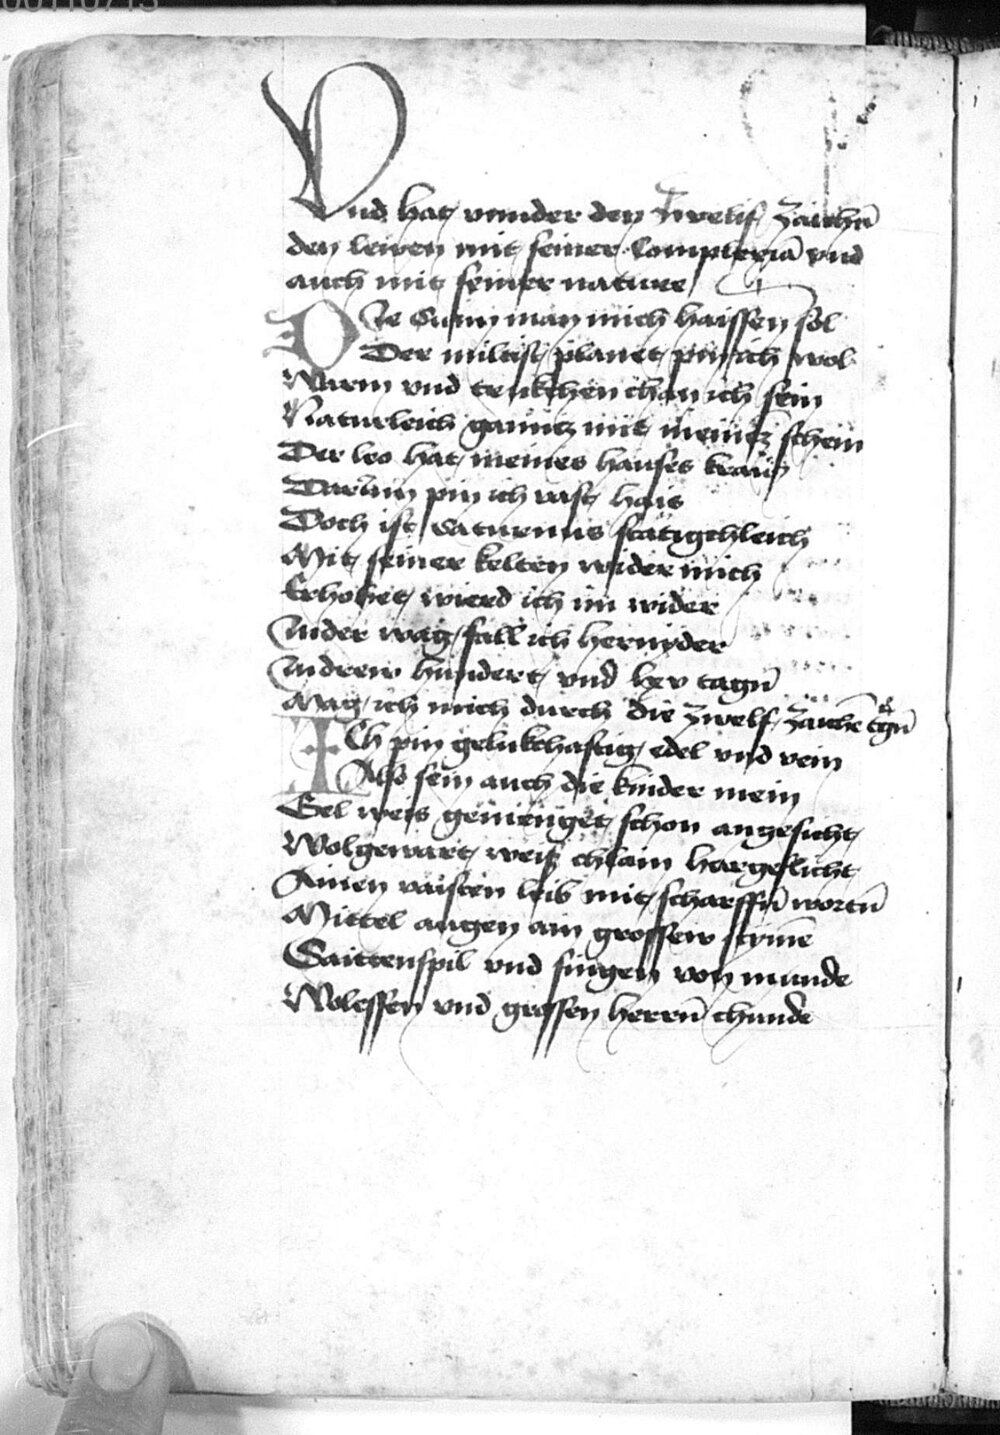 Vnd hat vnnder den zwelif zaichn̄
den leiben mit seiner Complexiā vnd
auch mit seiner nature
Die Sunn man mich haissen sol
Der miltist planet pin ich wol
Warm vnd trukchen chan ich sein
Naturleich ganntz mit meinē schein
Der leo hat meines hauses krais
Darūm pin ich vast hais
Doch ist saturnus stätigchleich
Mit seiner kelten wider mich
Erhohet wierd ich im wider
In der wag fall ich hernyder
In drew hundert vnd lxv tagn̄
Mag ich mich durch die zwelf zaichē tgn̄
ICh pin gelukchaftig edel vnd vein
Also sein auch die kinder mein
Gel weis gemenget schon angesicht
Wolgewart weiß chlain hargeslicht
Ainen vaisten leib mit scharffn̄ wortn̄
Mittel augen ain grossew stymē
Saittenspil vnd singen von munde
Wolessen vnd grossen herrn̄ chunde